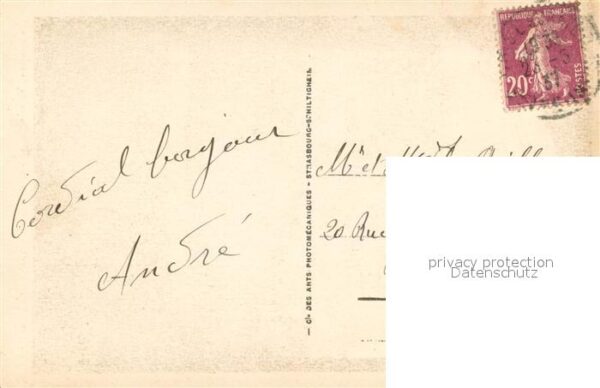 Cordial bonjour
André
Cie DES ARTS PHOTOMÉCANIQUES - STRASBOURG-SCHILTIGHEIM
REPUBLIQUE FRANÇAISE
20c
POSTES
Mr et
20 Rue
privacy protection
Datenschutz